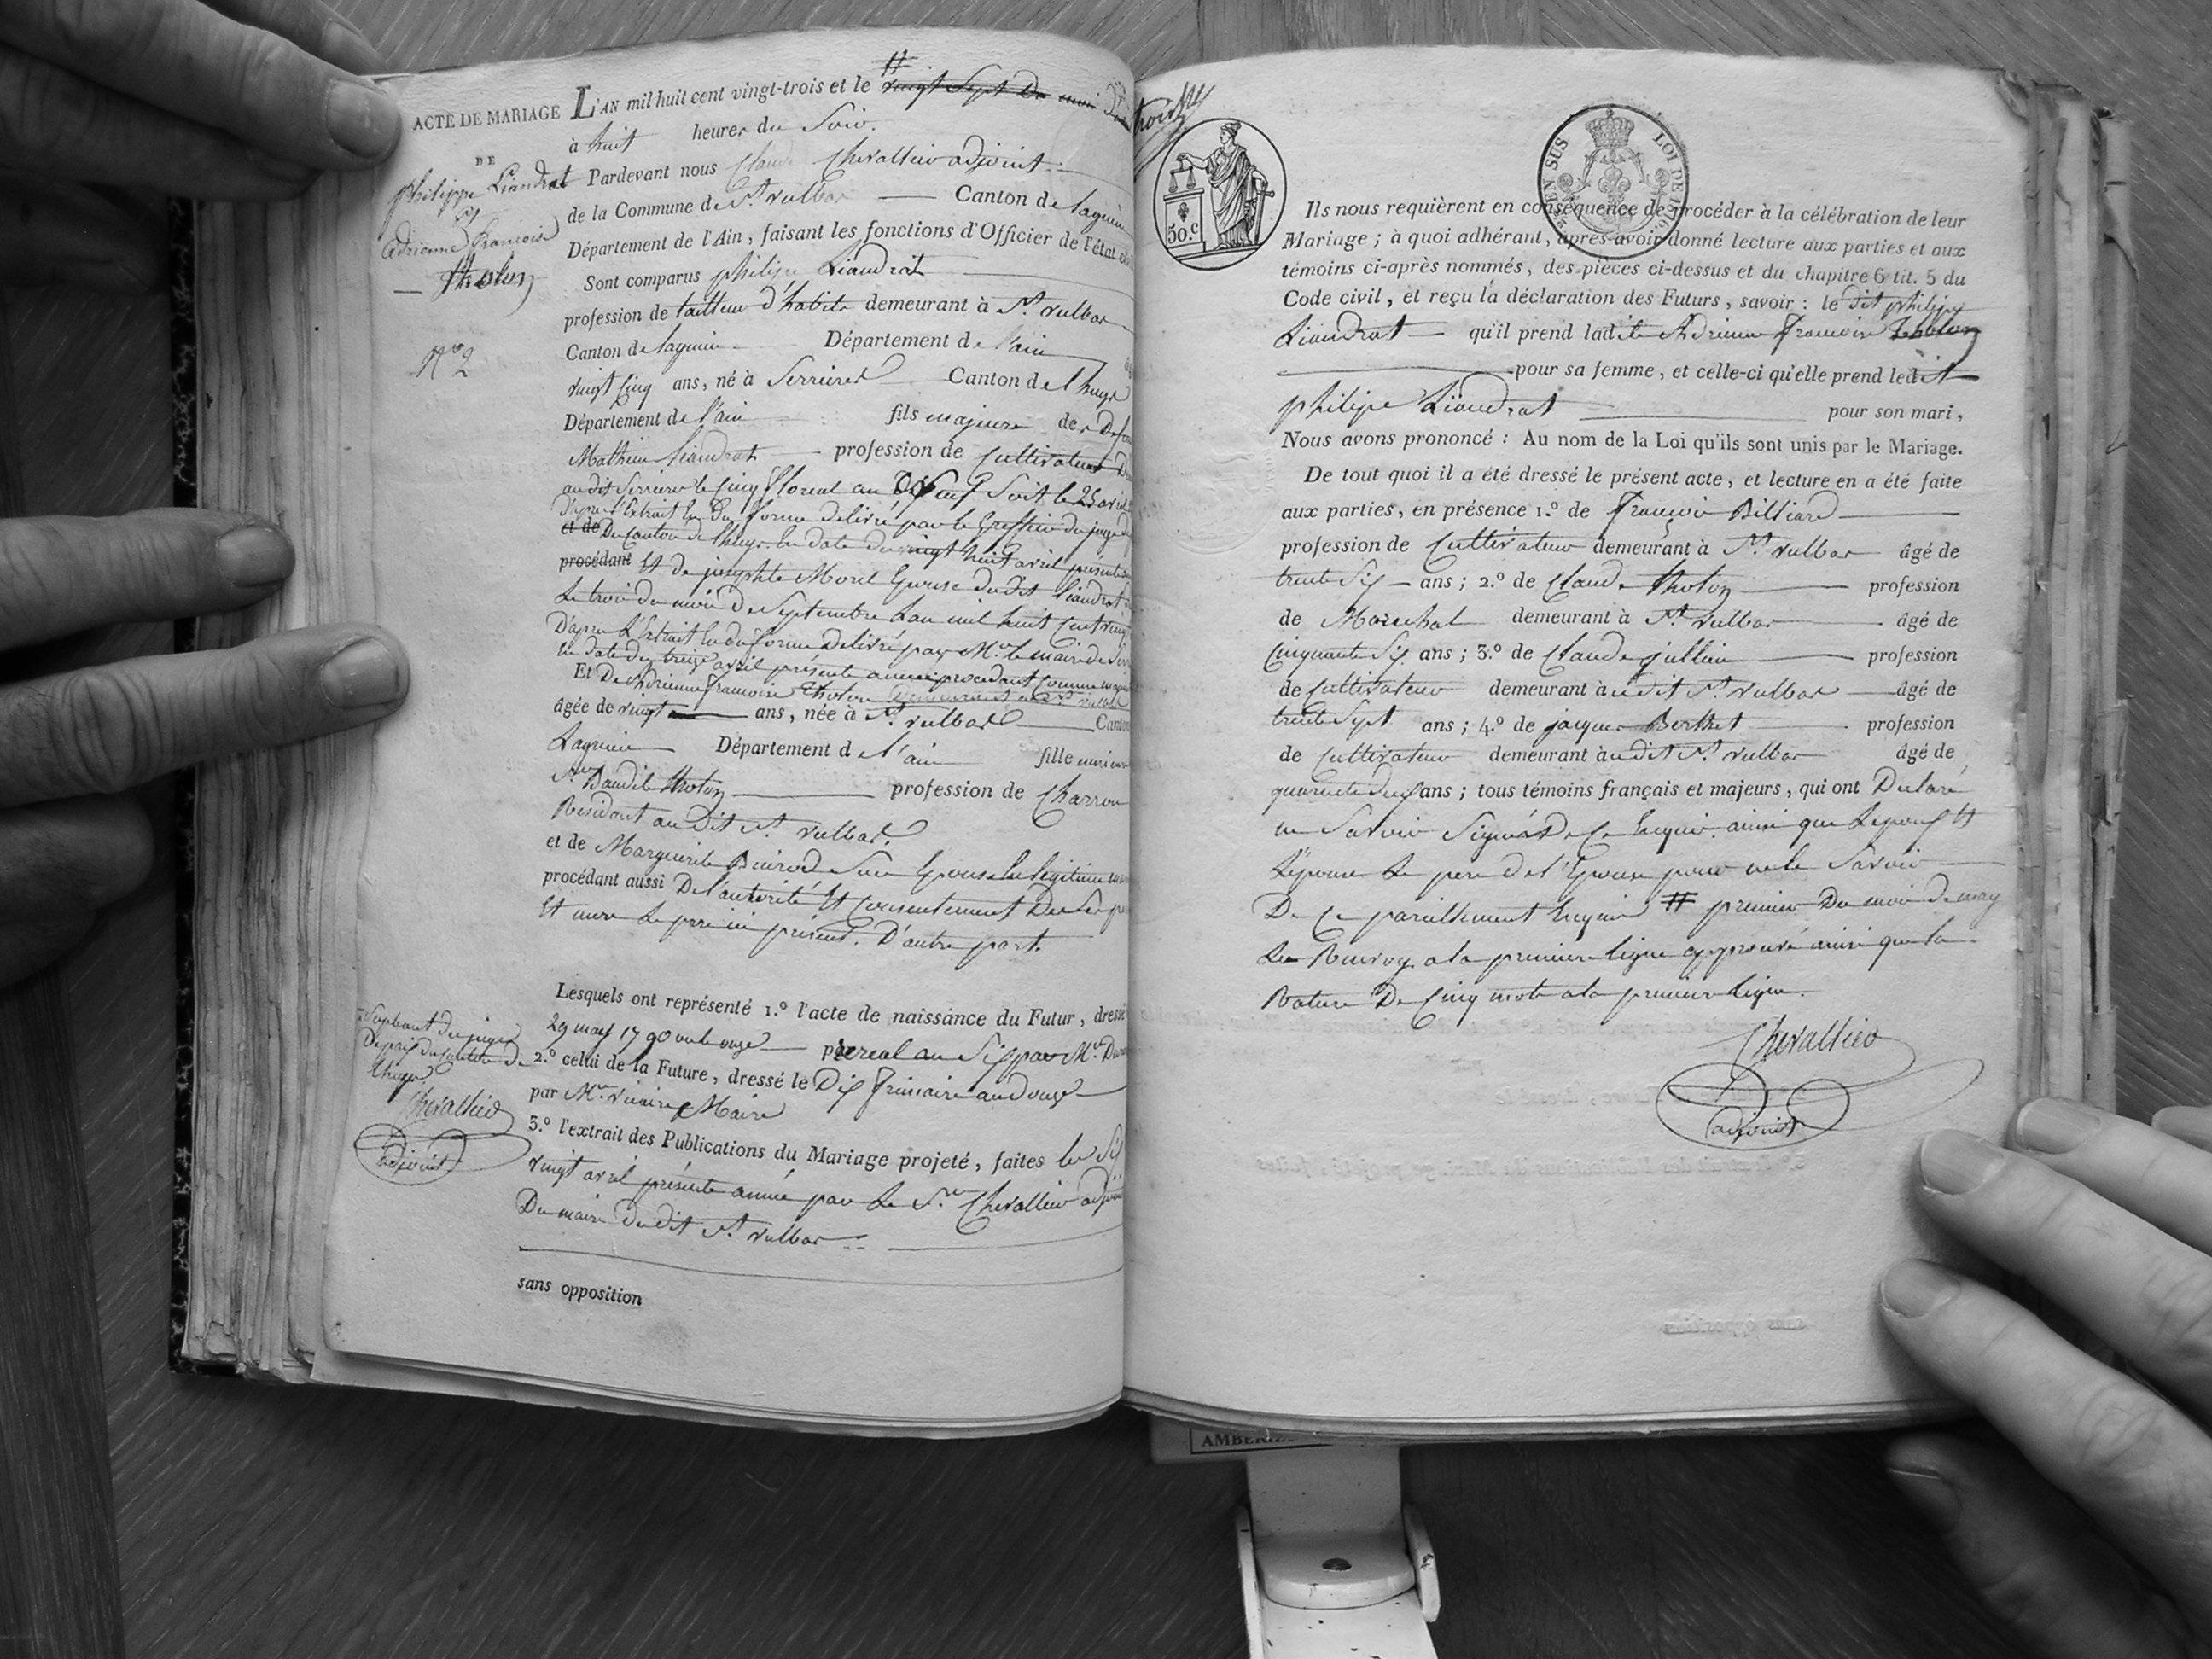 ACTE DE MARIAGE
DE
philippe Liandrat
et
adrienne françoise
tholon
N° 2
L'AN mil huit cent vingt-trois et le # vingt Sept Du mois
à huit heures du Soir.
Pardevant nous Claude Chevallier adjoint
de la Commune de St. vulbas Canton de lagnieu
Département de l'Ain, faisant les fonctions d'Officier de l'état
Sont comparus philipe Liandrat
profession de tailleur d'habits demeurant à St. vulbas
Canton de lagnieu Département de l'ain
vingt cinq ans, né à Serrieres Canton de l'huys
Département de l'ain fils majeur de
Mathieu Liandrat profession de Cultivateur
au dit Serrieres le Cinq floreal an Soit le 25 avril
D'apres l'Extrait En Du forme Delivré par le Greffier du juge
et de Du Canton de lhuys En date du vingt huit avril
procédant Et de josephte Morel Epouse du dit Liandrat
Le trois du mois De Septembre L'an mil huit Cent vingt
D'apres L'Extrait En du forme Delivré par Mr. le maire de
En date du treize avril présente année procédant Comme majeur
Et De Adrienne françoise tholon demeurant a St. vulbas
âgée de vingt ans, née à St. vulbas
Lagnieu Département de l'ain fille mineure
Sr. Baudile tholon profession de Charron
Residant au Dit St. vulbas.
et de Marguerite Binrod Son Epouse legitime
procédant aussi De l'autorité Et Consentement De Ses
Et mere Le pere ici présent. D'autre part.
Lesquels ont représenté 1.º l'acte de naissance du Futur, dressé
29 may 1790 prereal au Six par Mr.
2.º celui de la Future, dressé le Dix frimaire an Douze
par Mr. vicaire Maire
3.º l'extrait des Publications du Mariage projeté, faites les Six
vingt avril présente année par Le Sr. Chevallier adjoint
Du maire du dit St. vulbas
sans opposition
Supleant du juge
De paix du Canton de
lhuys
Chevallier
adjoint
50.c
EN SUS LOI DE
Ils nous requièrent en conséquence de procéder à la célébration de leur
Mariage; à quoi adhérant, après avoir donné lecture aux parties et aux
témoins ci-après nommés, des pièces ci-dessus et du chapitre 6 tit. 5 du
Code civil, et reçu la déclaration des Futurs, savoir: le dit philipe
Liandrat qu'il prend ladite Adrienne françoise tholon
pour sa femme, et celle-ci qu'elle prend ledit
philipe Liandrat pour son mari,
Nous avons prononcé: Au nom de la Loi qu'ils sont unis par le Mariage.
De tout quoi il a été dressé le présent acte, et lecture en a été faite
aux parties, en présence 1.º de François Billiard
profession de Cultivateur demeurant à St. vulbas âgé de
trente Six ans; 2.º de Claude tholon profession
de Marechal demeurant à St. vulbas âgé de
Cinquante Six ans; 3.º de Claude jullien profession
de Cultivateur demeurant àudit St. vulbas âgé de
trente Sept ans; 4.º de jacques Berthet profession
de Cultivateur demeurant àudit St. vulbas âgé de
quarante deux ans; tous témoins français et majeurs, qui ont Declaré
ne Savoir Signer De Ce Enquis ainsi que L'epoux Et
L'épouse Le pere de l'Epouse pour ne le Savoir
De Ce pareillement Enquis # premier Du mois de may
Le Renvoy a la premiere ligne approuvé ainsi que la
Rature De Cinq mots a la premiere ligne.
Chevallier
adjoint
AMBERI